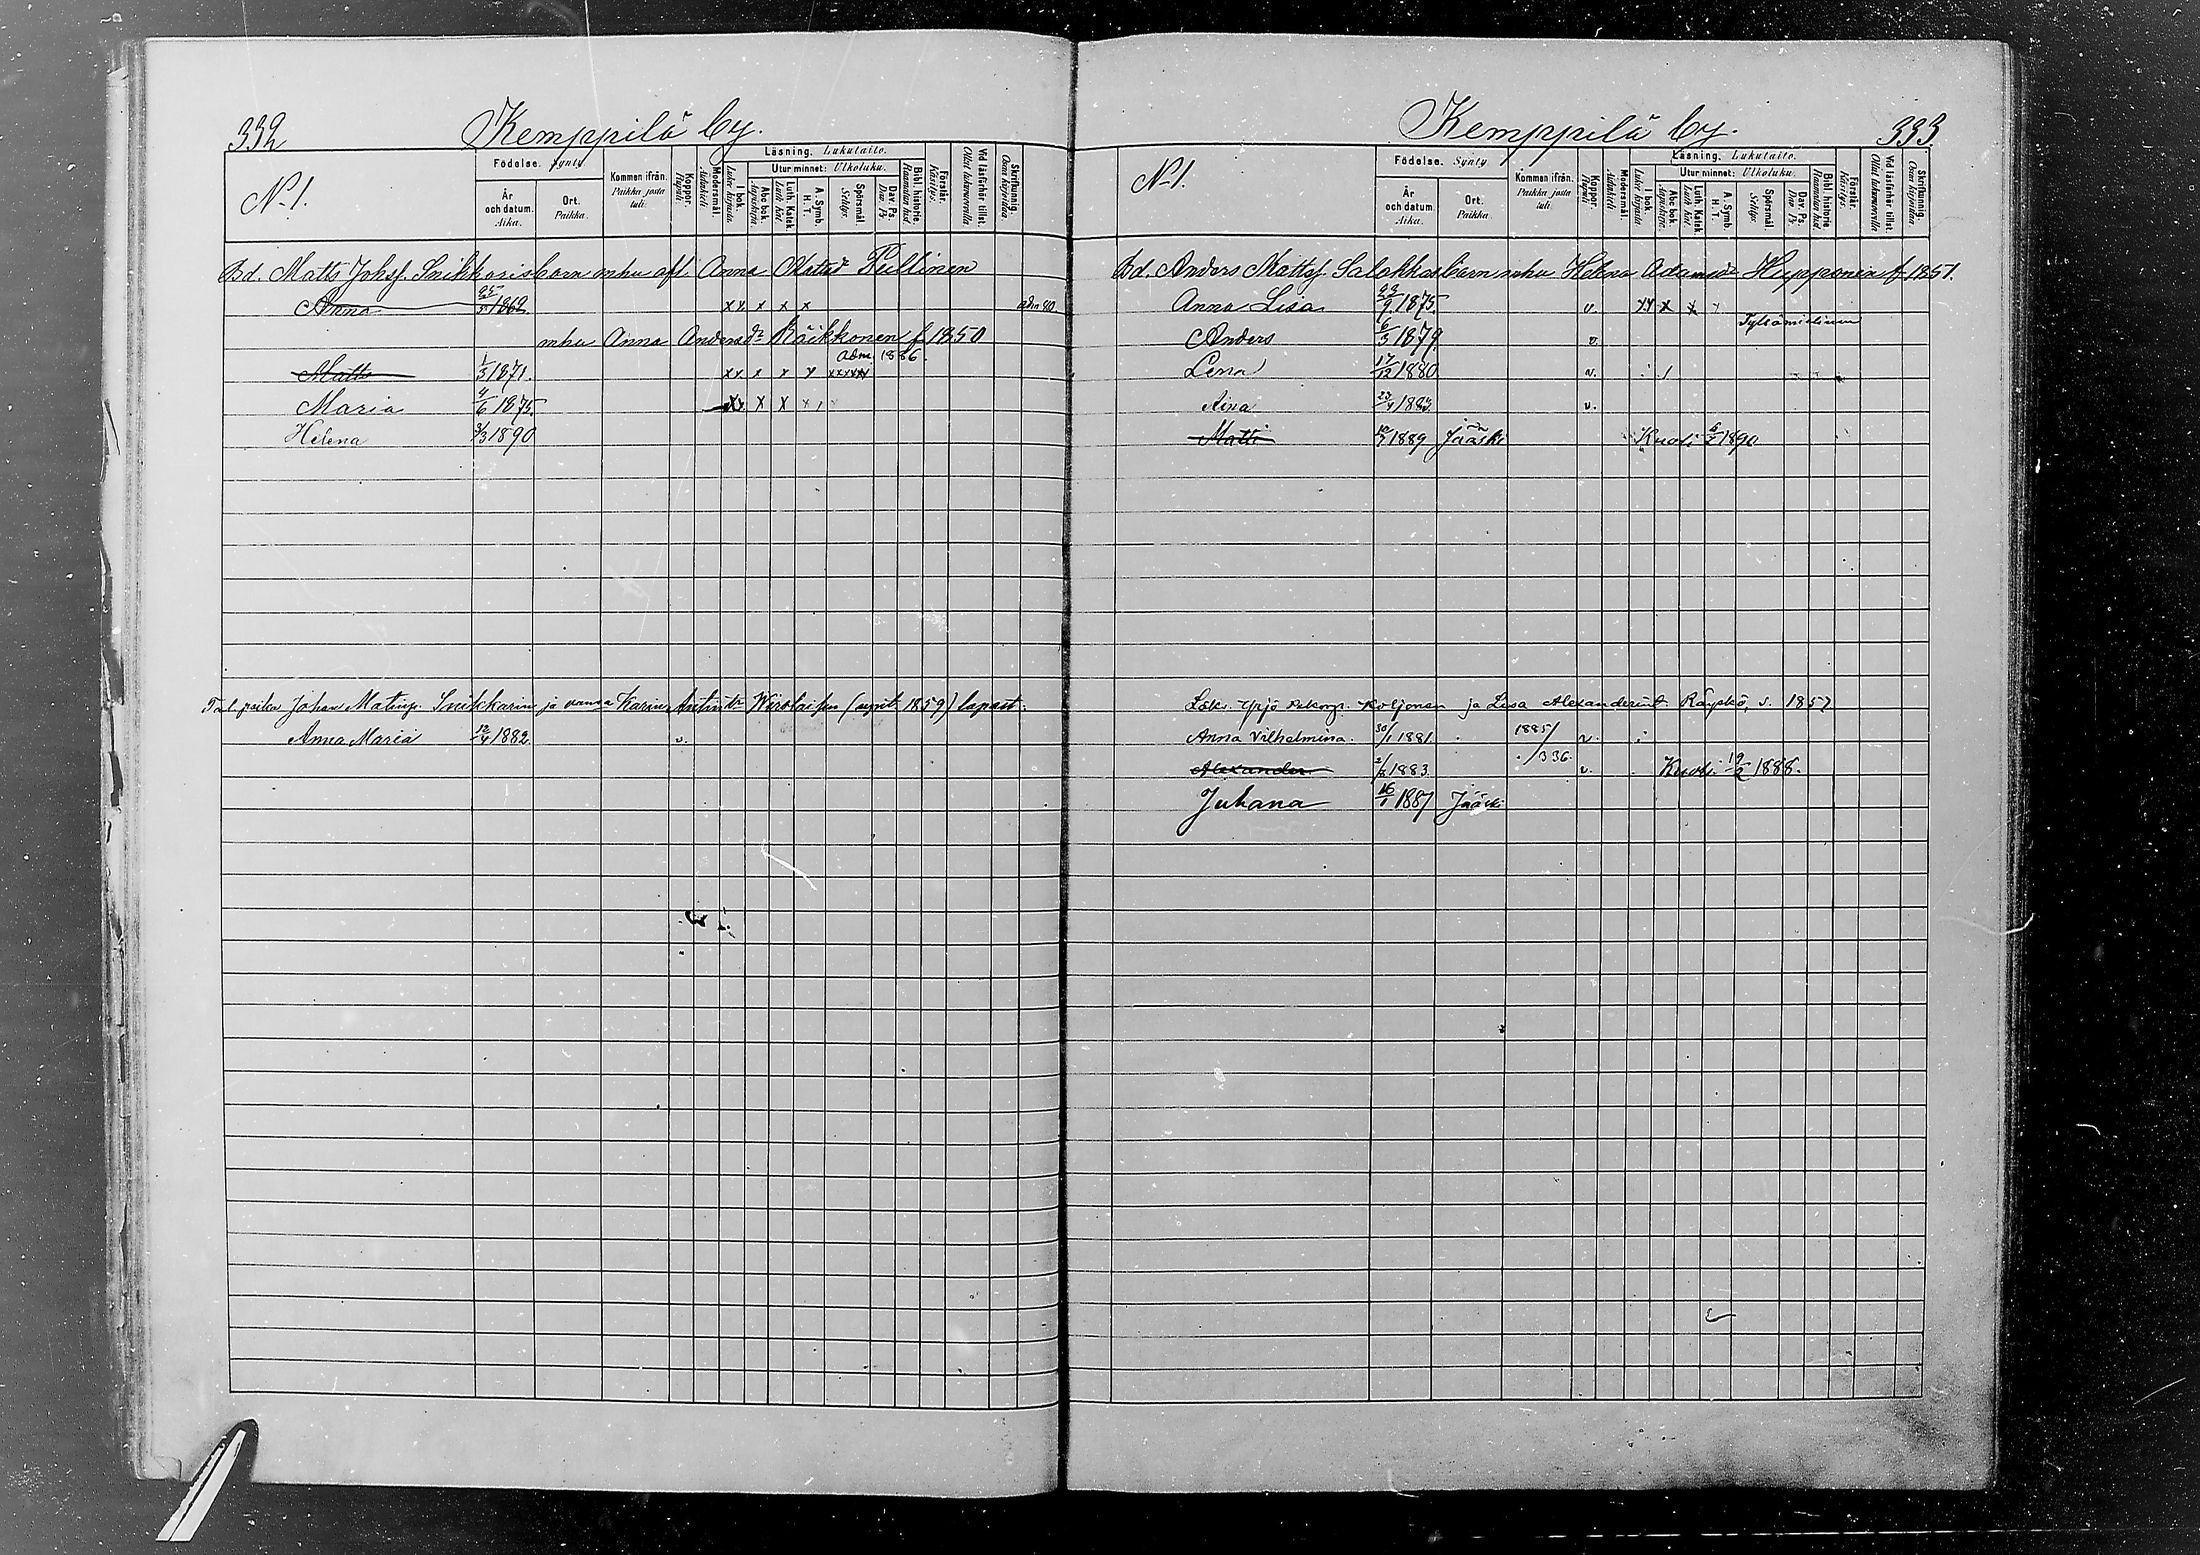 332
Kemppilä by.
No 1.
Födelse. Synty.
År och datum. Aika.
Ort. Paikka.
Kommen ifrån. Paikka josta tuli.
Koppor. Rupuli
Modersmål. Äidinkieli
Läsning. Lukutaito.
I bok. Lukee kirjasta.
Utur minnet: Ulkoluku.
Abc bok. Aapiskirja.
Luth. Katek. Luth. kat.
A. Symb. H. T.
Spörsmål Selitys.
Dav. Ps. Dav. Ps.
Bibl. historie. Raamatun hist.
Förstår. Käsitys.
Vid läsförhör tillst. Ollut lukuvuorolla
Skrifkunnig. Osaa kirjoittaa
Bd. Matts Johsf. Snikkaris barn mhu afl. Anna Matsdr Pullinen
Anna 25/5 1862 xx x x x adm 80.
mhu Anna Andersdr Räikkönen f. 1850
adm. 1886.
Matts 1/5 1871. xx x x x xxxxx
Maria 4/6 1875. xx x x x
Helena 3/3 1890
Tal. poika Johan Matinp. Snikkarin ja vaimon Karin Antintr Wirolaisen (synt. 1859) lapset:
Anna Maria 12/4 1882 v.
333.
Kemppilä by.
No 1.
Födelse. Synty.
År och datum. Aika.
Ort. Paikka.
Kommen ifrån. Paikka josta tuli.
Koppor. Rupuli
Modersmål. Äidinkieli
Läsning. Lukutaito.
I bok. Lukee kirjasta
Utur minnet: Ulkoluku.
Abc bok. Aapiskirja.
Luth. Katek. Luth. kat.
A. Symb. H. T.
Spörsmål Selitys.
Dav. Ps. Dav. Ps.
Bibl. historie Raamatun hist.
Förstår. Käsitys.
Vid läsförhör tillst. Ollut lukuvuorolla
Skrifkunnig. Osaa kirjoittaa
Bd. Anders Mattsf. Salakkas barn mhu Helena Adamsdr Hyppönen f. 1851.
Anna Lisa 23/9 1875. v. xx x x
Tylsämielinen
Anders 6/3 1879. v.
Lena 17/12 1880 v.
Aina 23/4 1883. v.
Matti 10/7 1889 Jääski Kuoli 6/5 1890
Lois. Yrjö Koljonen ja Lisa Alexanderint. Räpskö, s. 1857
Anna Vilhelmina. 30/1 1881. 1885/ v.
Alexander 2/8 1883. /336. v. Kuoli 19/2 1888.
Juhana 16/1 1887 Jääski